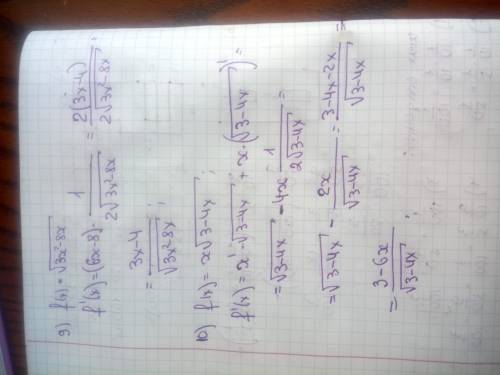 9) f(x) = √(3x²-8x)
f'(x) = (6x-8) · 1/(2√(3x²-8x)) = 2(3x-4)/(2√(3x²-8x)) =
= (3x-4)/√(3x²-8x) ;
10) f(x) = x√(3-4x) ;
f'(x) = x' · √(3-4x) + x · (√(3-4x))' =
= √(3-4x) - 4x · 1/(2√(3-4x)) =
= √(3-4x) - 2x/√(3-4x) = (3-4x-2x)/√(3-4x) =
= (3-6x)/√(3-4x) ;